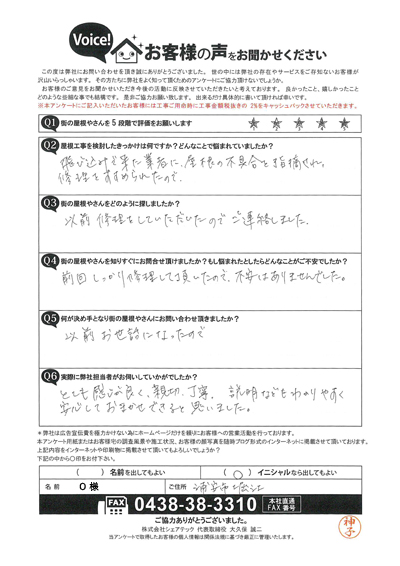 Voice!
お客様の声をお聞かせください
この度は弊社にお問い合わせを頂き誠にありがとうございました。世の中には弊社の存在やサービスをご存知ないお客様が
沢山いらっしゃいます。その方たちに弊社をよく知って頂くためのアンケートにご協力頂けないでしょうか。
お客様のご意見をお聞かせいただき今後の活動に反映させていただきたいと考えております。良かったこと、嬉しかったこと
どのような些細な事でも結構です。是非ご協力お願い致します。出来るだけ具体的に書いて頂ければ幸いです。
※本アンケートにご記入いただいたお客様には工事ご用命時に工事金額税抜きの 2%をキャッシュバックさせていただきます。
Q1 街の屋根やさんを 5 段階で評価をお願いします ★ ★ ★ ★ ★
Q2 屋根工事を検討したきっかけは何ですか？どんなことで悩まれていましたか？
飛び込みで来た業者に、屋根の不具合を指摘され、
修理をすすめられたので。
Q3 街の屋根やさんをどのように探しましたか？
以前修理をしていただいたのでご連絡しました。
Q4 街の屋根やさんを知りすぐにお問合せ頂けましたか？もし悩まれたとしたらどんなことがご不安でしたか？
前回しっかり修理して頂いたので、不安はありませんでした。
Q5 何が決め手となり街の屋根やさんにお問い合わせ頂きましたか？
以前お世話になったので
Q6 実際に弊社担当者がお伺いしていかがでしたか？
とても感じが良く、親切、丁寧、説明などもわかりやすく
安心しておまかせできると思いました。
＊弊社は広告宣伝費を極力かけない為にホームページだけを頼りにお客様への営業活動を行っております。
本アンケート用紙またはお客様宅の調査風景や施工状況、お客様の御写真を随時ブログ形式のインターネットに掲載させて頂いております。
上記内容をインターネットや印刷物に掲載させて頂いてもよろしいでしょうか？
下記の中から○印をお付下さい。
（ ）名前を出してもよい （○）イニシャルなら出してもよい
名前 O 様 ご住所 浦安市堀江
FAX 0438-38-3310 本社直通 FAX 番号
ご協力ありがとうございました。
株式会社シェアテック 代表取締役 大久保 誠二
当アンケートで取得したお客様の個人情報は関係法規に基づき厳正に管理いたします。